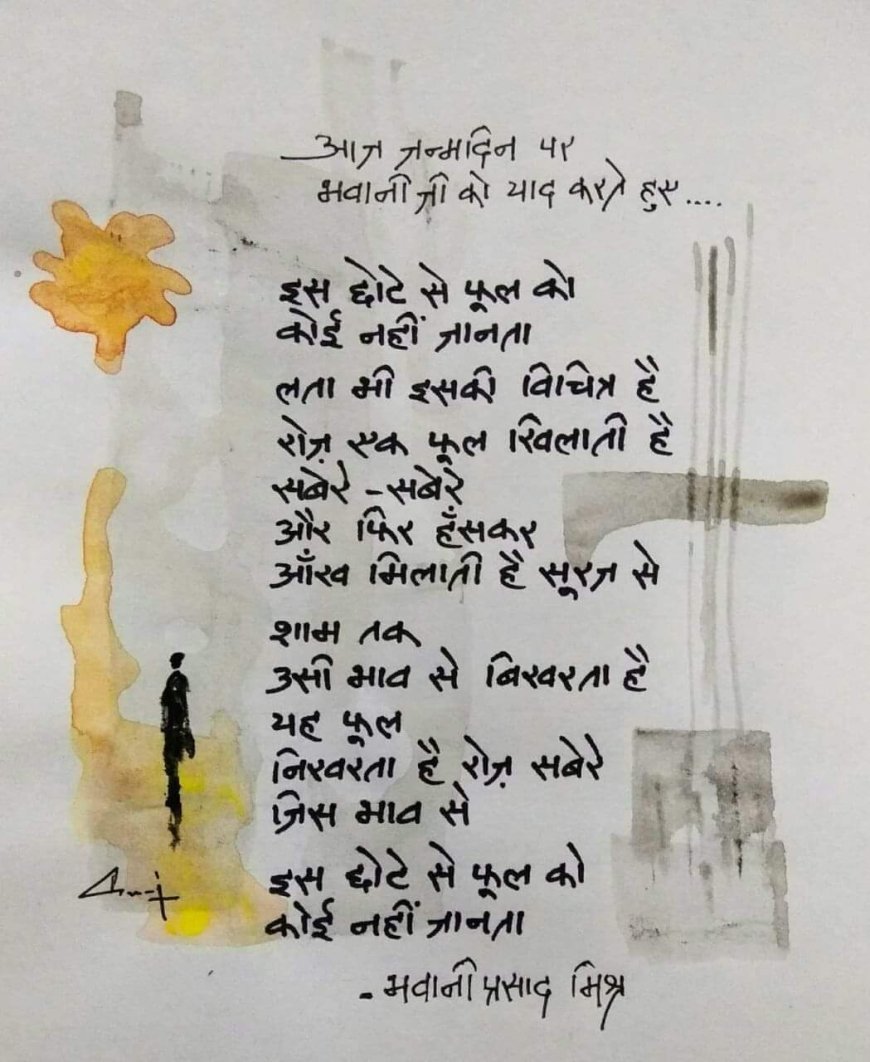 आज जन्मदिन पर
भवानी जी को याद करते हुए....
इस छोटे से फूल को
कोई नहीं जानता
लता भी इसकी विचित्र है
रोज़ एक फूल खिलाती है
सबेरे - सबेरे
और फिर हँसकर
आँख मिलाती है सूरज से
शाम तक
उसी भाव से बिखरता है
यह फूल
निखरता है रोज़ सबेरे
जिस भाव से
इस छोटे से फूल को
कोई नहीं जानता
- भवानी प्रसाद मिश्र